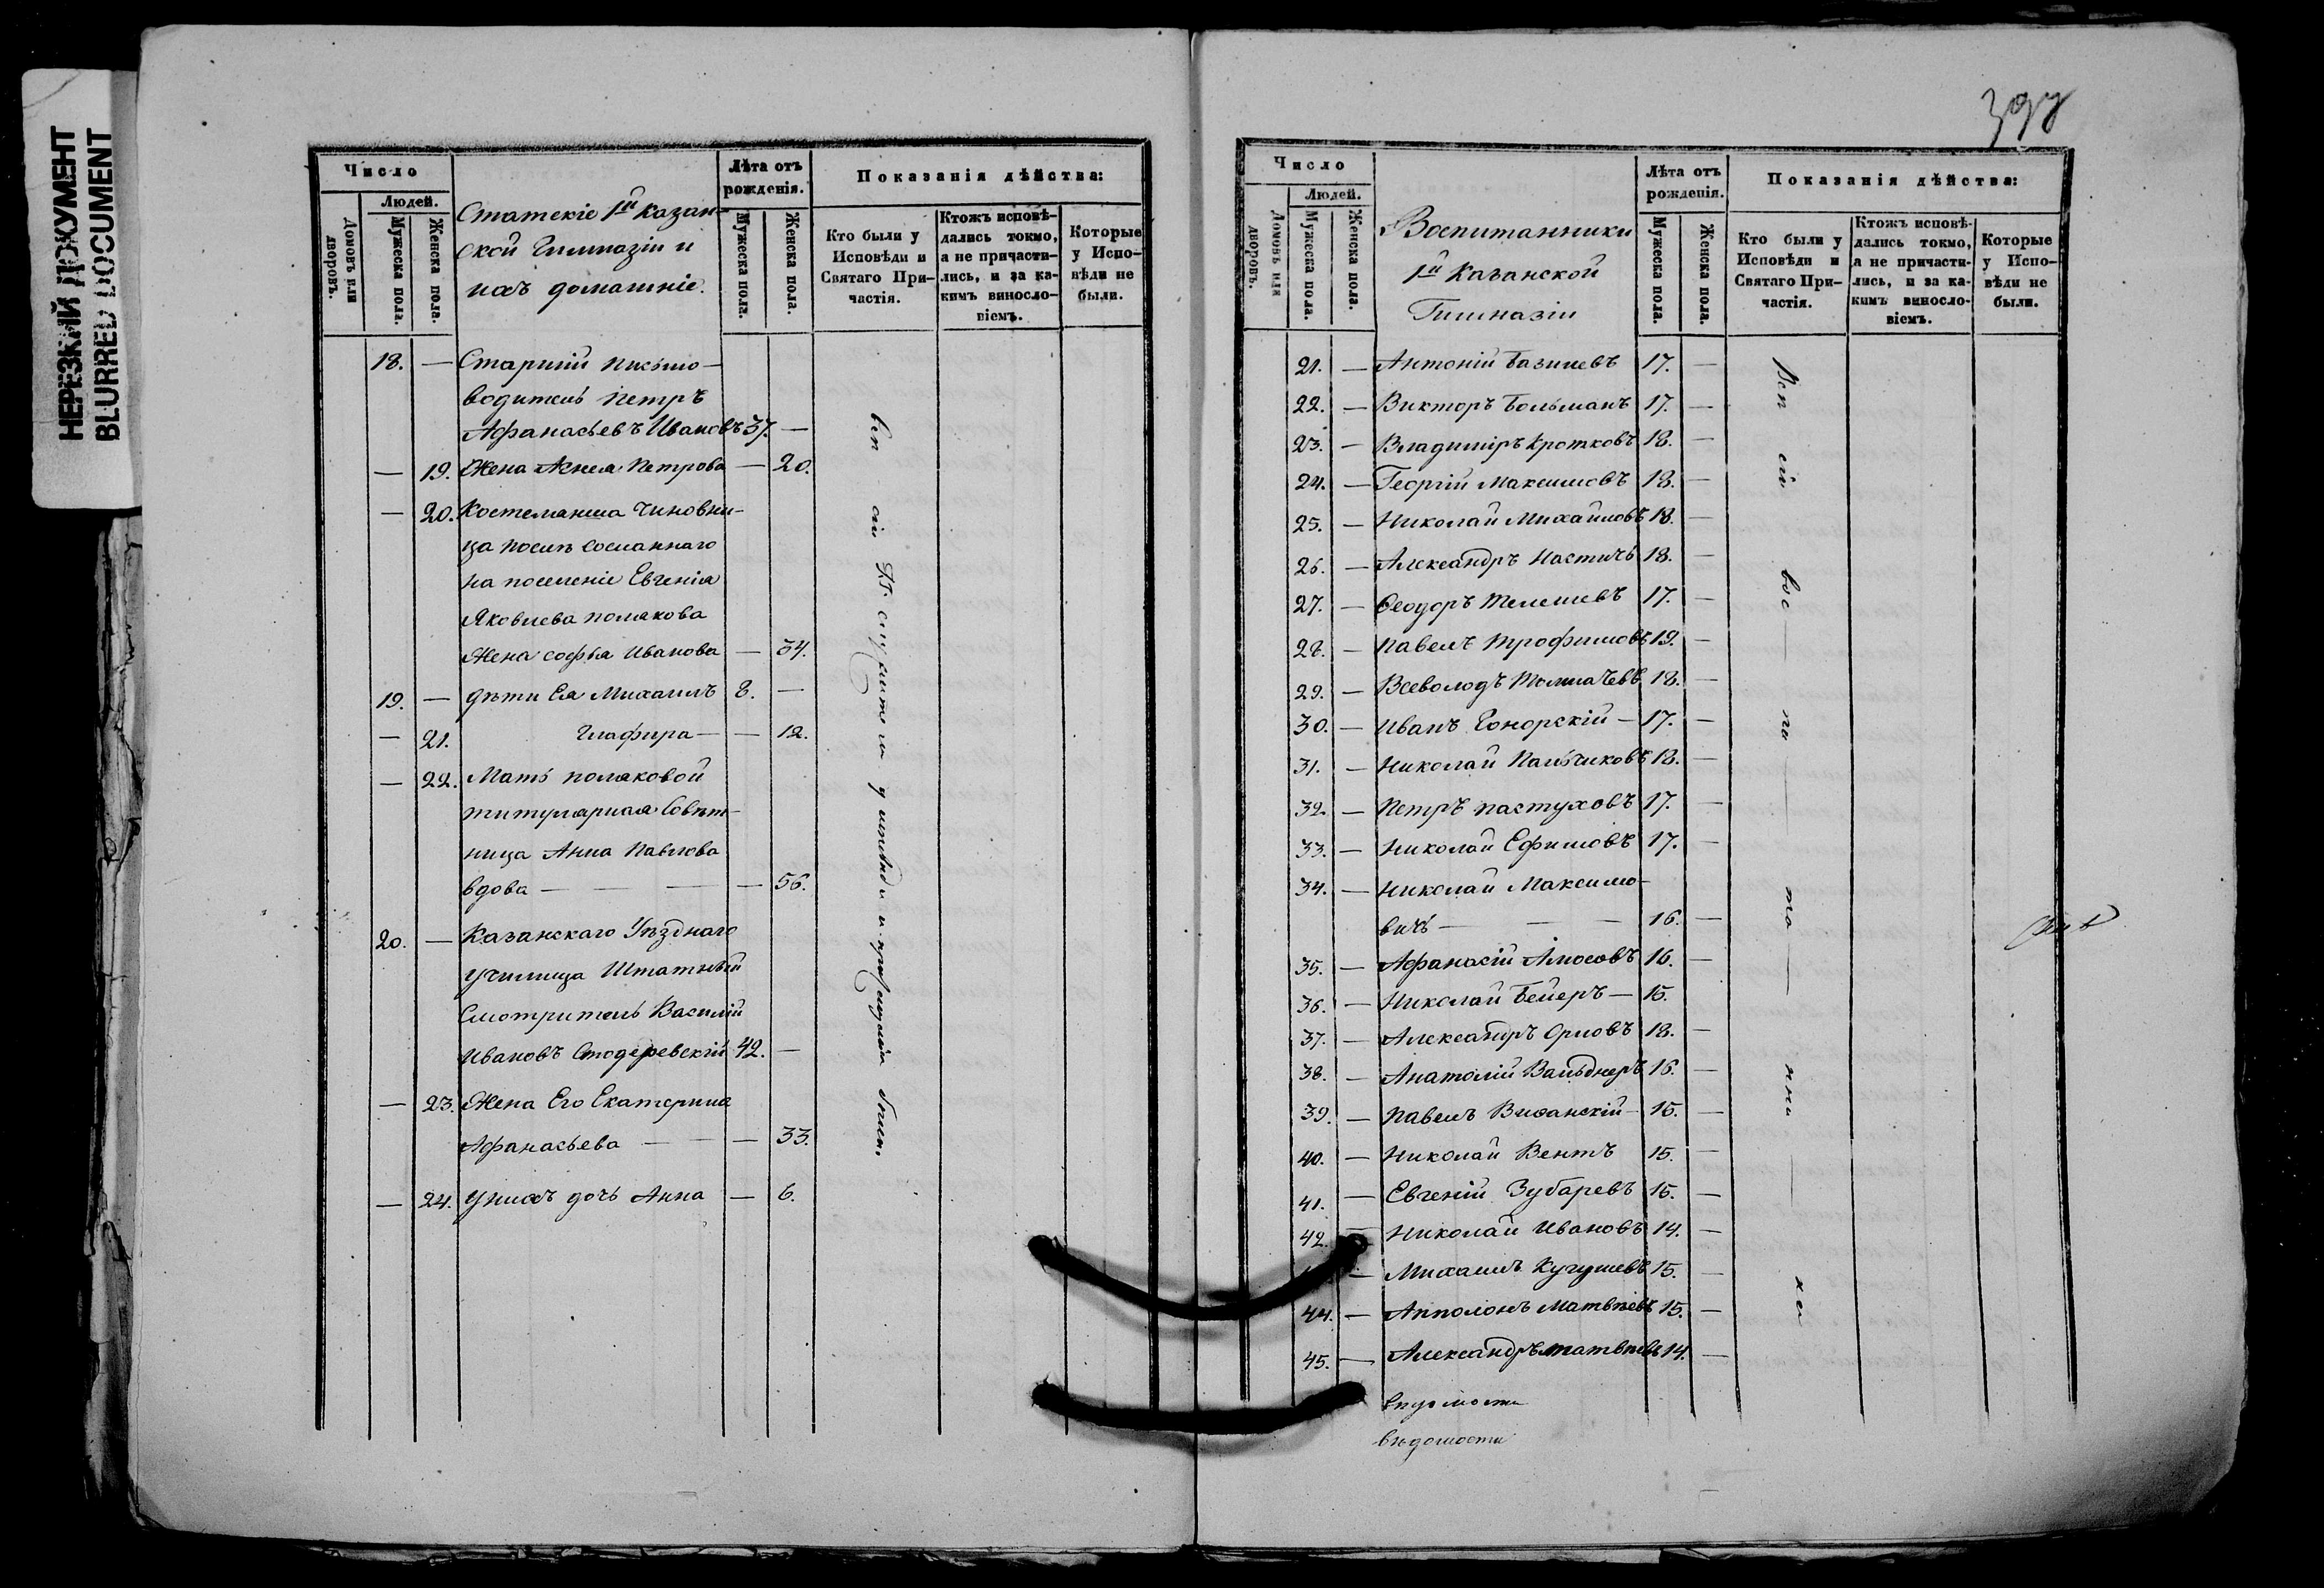 НЕРЕЗКИЙ ДОКУМЕНТ
BLURRED DOCUMENT
Число
Людей.
Домовъ или дворовъ.
Мужеска пола.
Женска пола.
Статскіе 1й Казан-
ской Гимназіи и
ихъ домашніе.
Лѣта отъ рожденія.
Мужеска пола.
Женска пола.
Показанія дѣйства:
Кто были у Исповѣди и Святаго При-частія.
Ктожъ исповѣ-дались токмо, а не причасти-лись, и за ка-кимъ винosло-віемъ.
Которые у Испо-вѣди не были.
18. — Старшій письмо-
водитель Петръ
Афанасьевъ Ивановъ 37. —
— 19. Жена Петрова — 20.
— 20. Костелянша чиновни-
ца сосланнаго
на поселеніе Евгенія
Яковлева Полякова
жена Софья Иванова — 34.
19. — дѣти Ея Михаилъ 8. —
— 21. Глафира — — 12.
— 22. Мать Поляковой
титулярная Совѣт-
ница Анна Павлова
вдова — — — — 56.
20. — Казанскаго Уѣзднаго
училища Штатный
Смотритель Василій
Ивановъ Стодеревскій 42. —
— 23. Жена Его Екатерина
Афанасьева — — — 33.
— 24. У нихъ дочь Анна — 6.
Число
Людей.
Домовъ или дворовъ.
Мужеска пола.
Женска пола.
Воспитанники
1й Казанской
Гимназіи
Лѣта отъ рожденія.
Мужеска пола.
Женска пола.
Показанія дѣйства:
Кто были у Исповѣди и Святаго При-частія.
Ктожъ исповѣ-дались токмо, а не причасти-лись, и за ка-кимъ винosло-віемъ.
Которые у Испо-вѣди не были.
21. — Антоній 17. —
22. — Викторъ Больманъ 17. —
23. — Владиміръ Кротковъ 18. —
24. — Георгій Максимовъ 18. —
25. — Николай Михайловъ 18. —
26. — Александръ Настичъ 18. —
27. — Ѳеодоръ Телешевъ 17. —
28. — Павелъ Трофимовъ 19. —
29. — Всеволодъ Толмачевъ 18. —
30. — Иванъ Гонорскій — 17. —
31. — Николай Пальчиковъ 18. —
32. — Петръ Пастуховъ 17. —
33. — Николай Ефимовъ 17. —
34. — Николай Максимо-
вичъ — — 16. —
35. — Афанасій Амосовъ 16. —
36. — Николай Бейеръ — 15.
37. — Александръ Орловъ 18. —
38. — Анатолій 16. —
39. — Павелъ 15. —
40. — Николай Вентъ 15. —
41. — Евгеній Зубаревъ 15. —
42. — Николай Ивановъ 14. —
— Михаилъ Кугушевъ 15. —
44. — Апполонъ Матвѣевъ 15. —
45. — Александръ Матвѣевъ 14. —
вѣдомости
вѣдомости